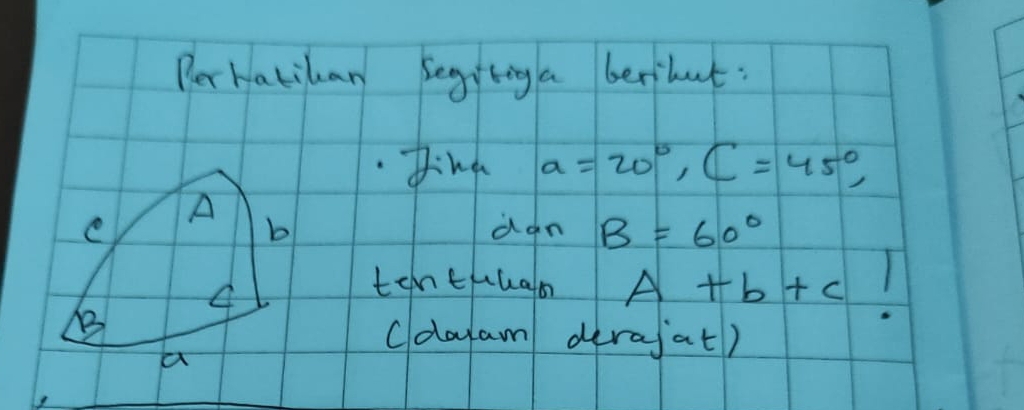 Perhatikan segitiga berikut:
• Jika a = 20°, C = 45°,
dan B = 60°
tentukan A + b + c !
(dalam derajat)
A
c
b
B
C
a